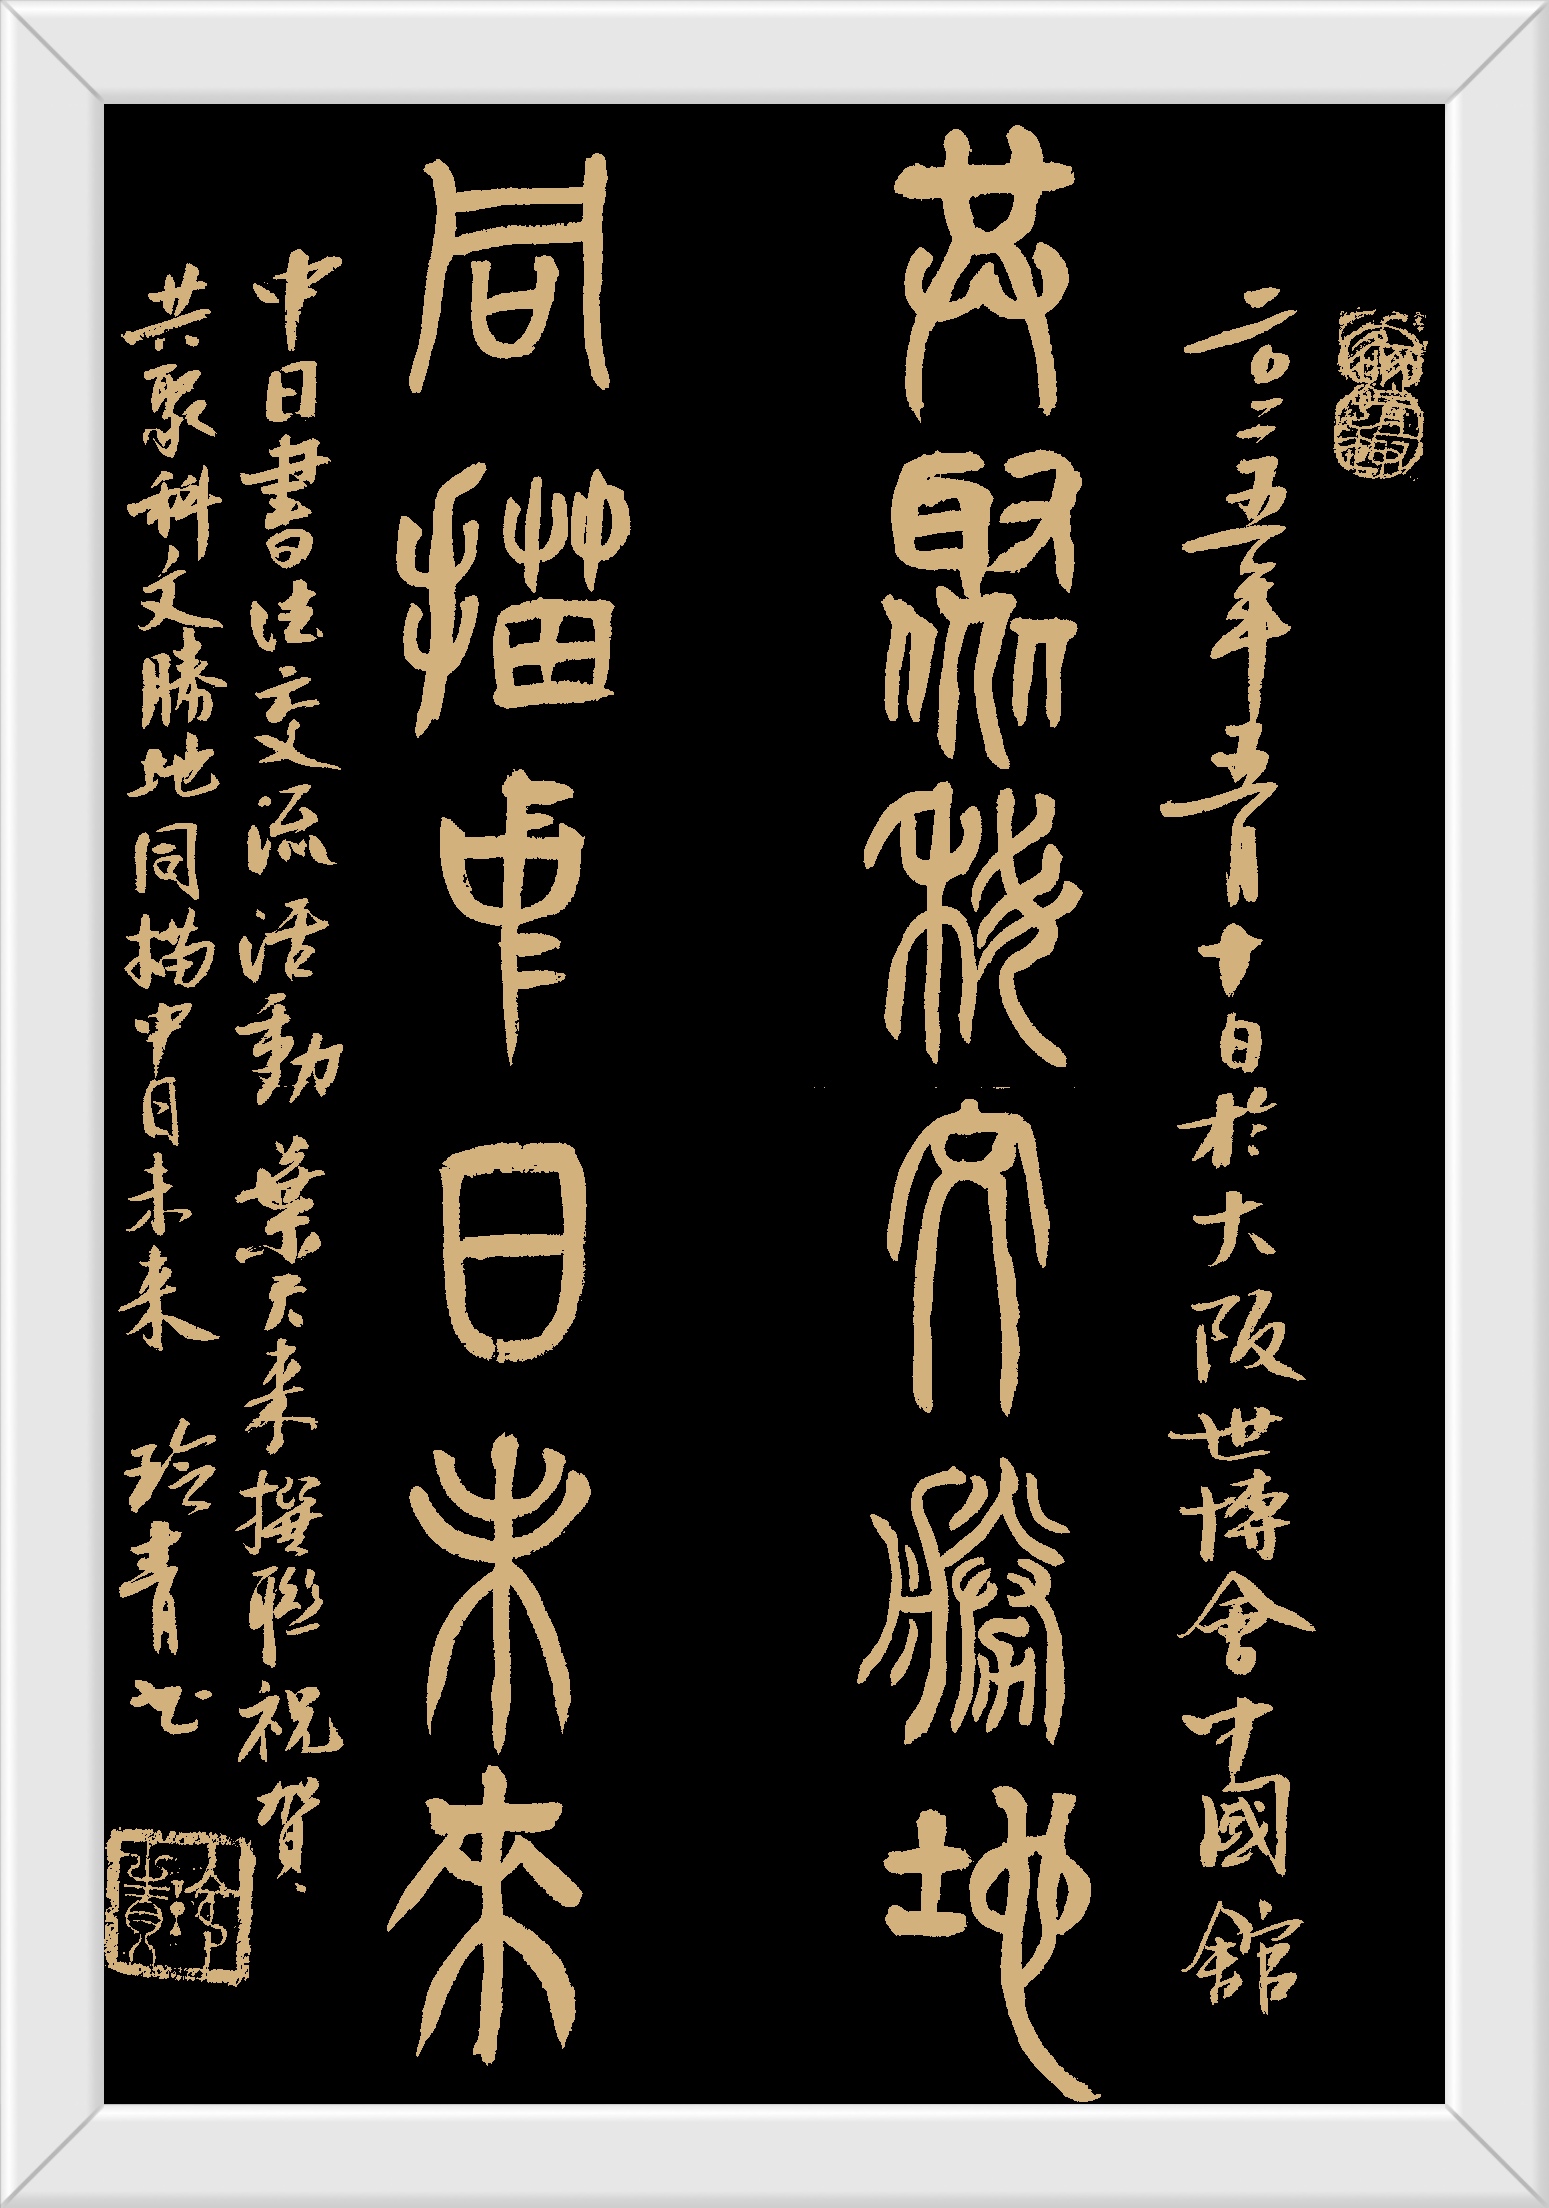 二〇二五年五月十日於大阪世博會中國館
共聚科文勝地
同描中日未來
中日書法交流活動 葉天來撰聯祝賀
共聚科文勝地同描中日未来 玲青书